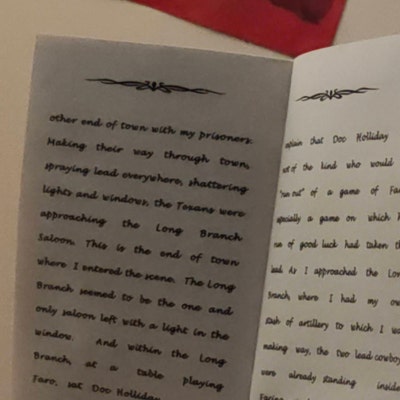 other end of town with my prisoners.
Making their way through town,
spraying lead everywhere, shattering
lights and windows, the Texans were
approaching the Long Branch
Saloon. This is the end of town
where I entered the scene. The Long
Branch seemed to be the one and
only saloon left with a light in the
window. And within the Long
Branch, at a table playing
Faro, sat Doc Holliday
that Doc Holliday
of the kind who would
"run out" of a game of
especially a game on which
of good luck had taken
lead. As I approached the
Branch, where I had my
of artillery to which I
making way, the two lead
were already standing